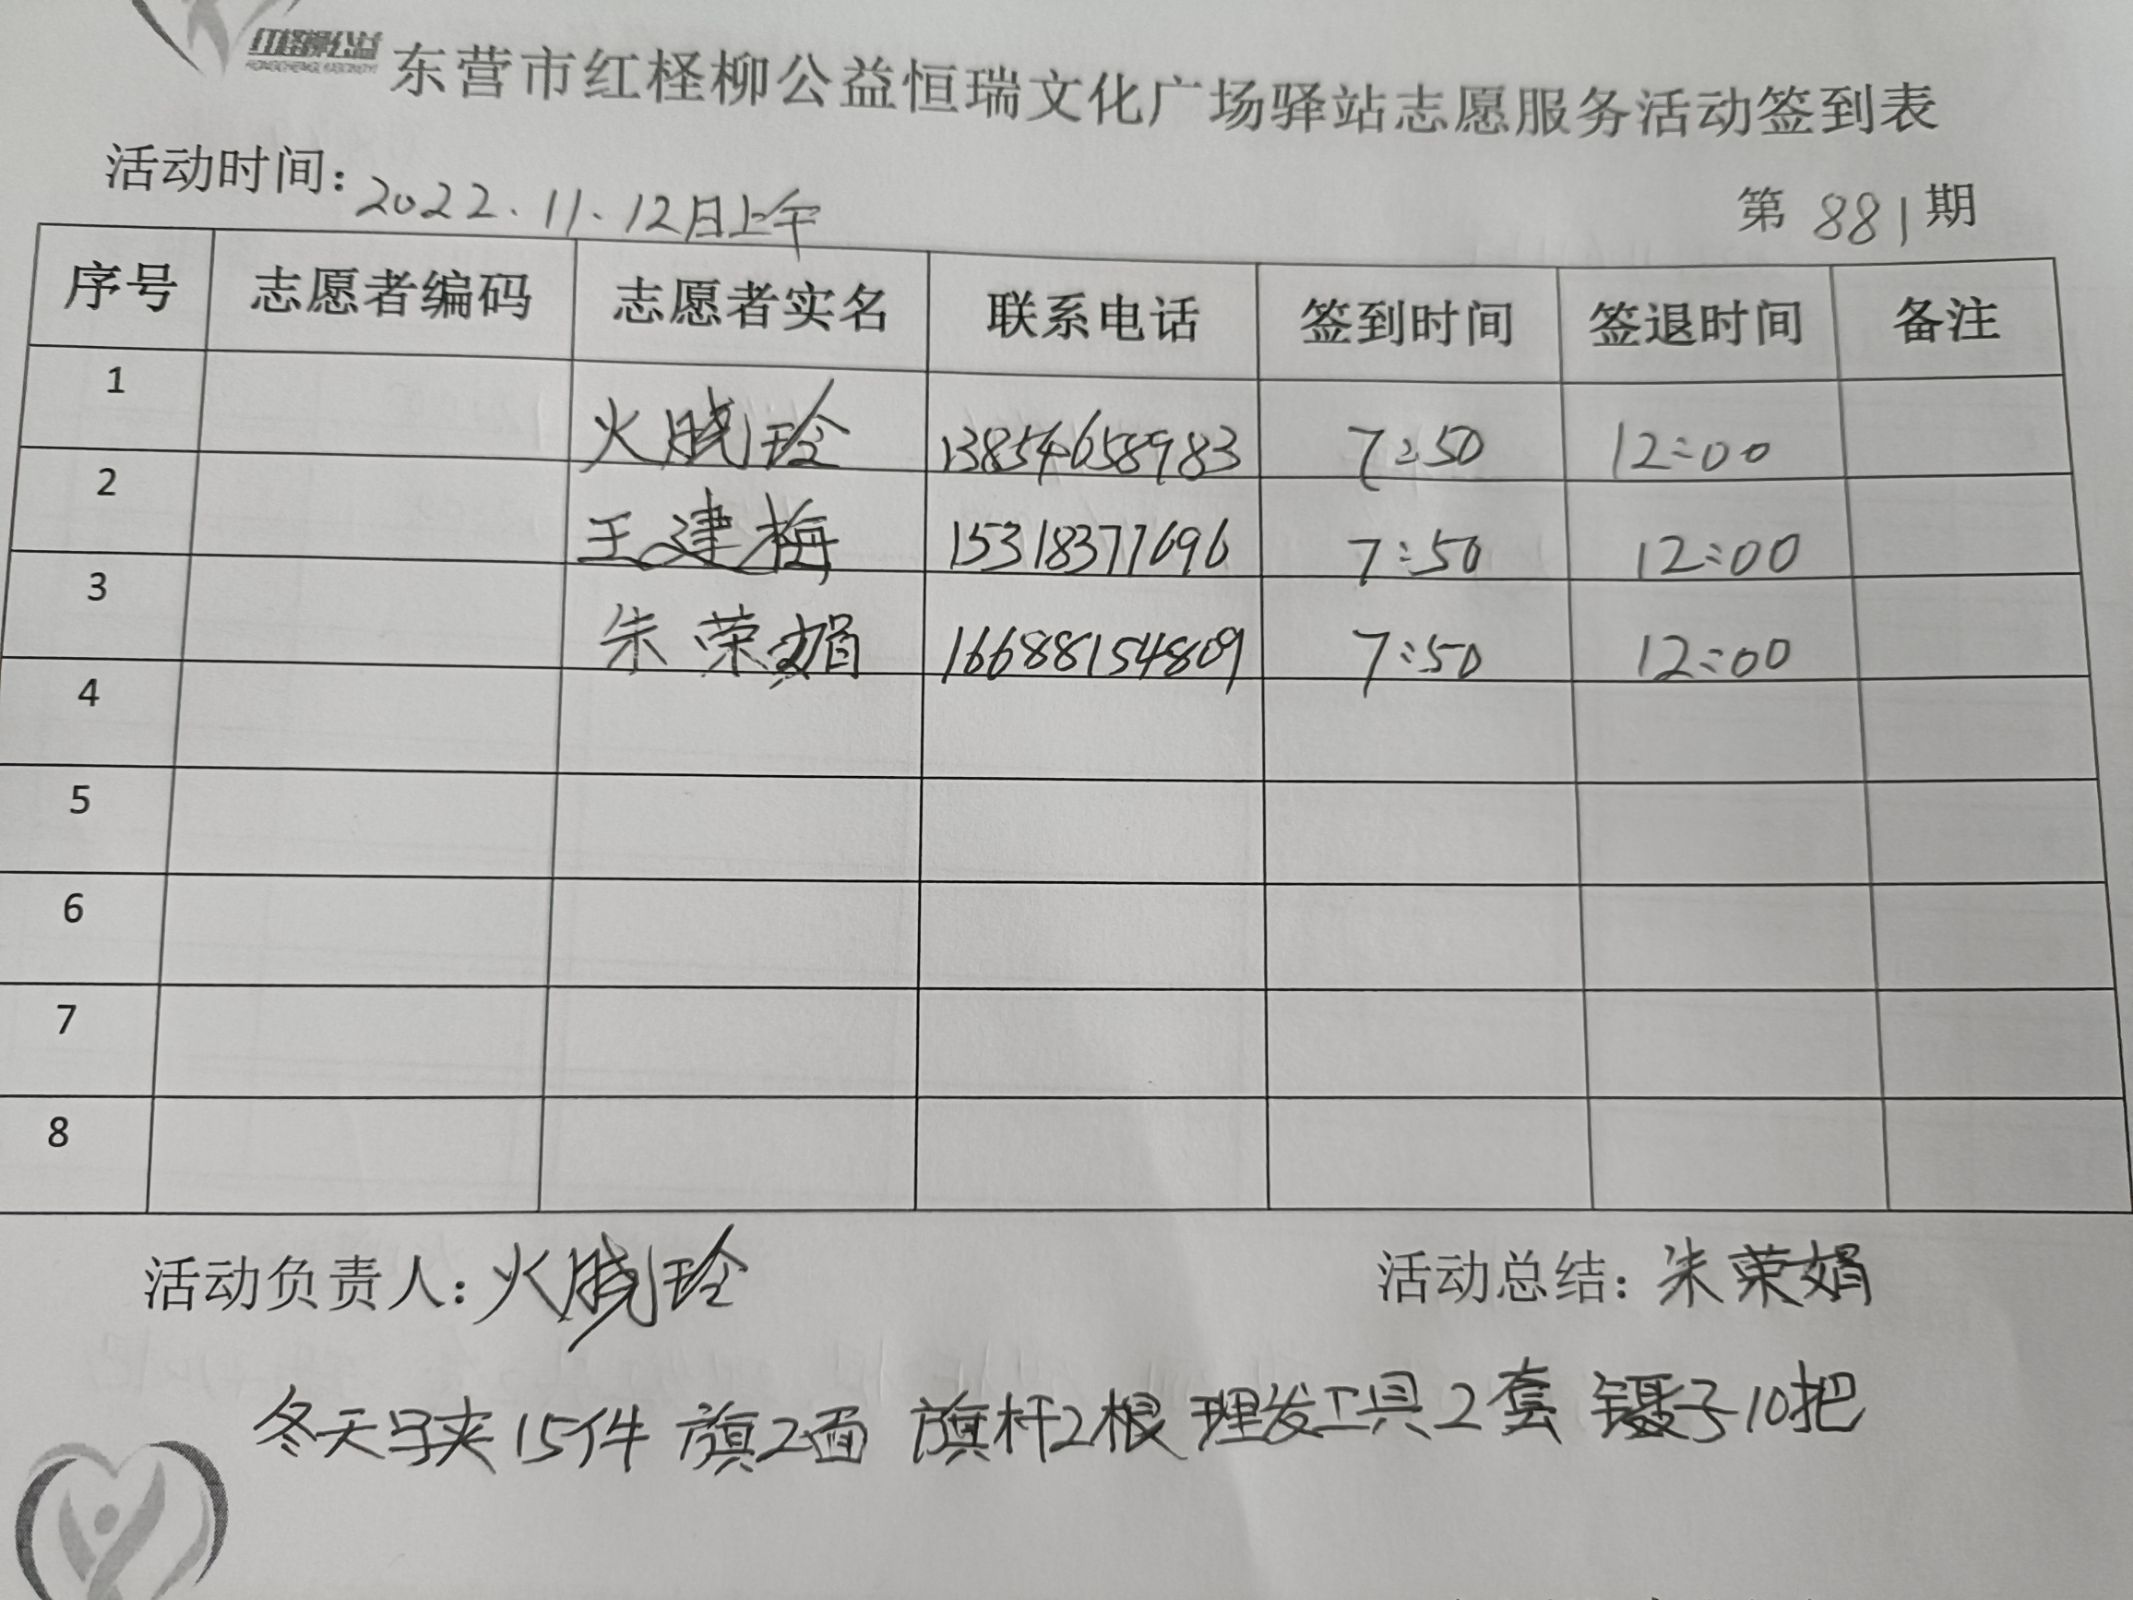 红柽柳公益
东营市红柽柳公益恒瑞文化广场驿站志愿服务活动签到表
活动时间：2022.11.12日上午
第881期
序号 志愿者编码 志愿者实名 联系电话 签到时间 签退时间 备注
1 火晓玲 13854658983 7:50 12:00
2 王建梅 15318377696 7:50 12:00
3 朱荣娟 16688154809 7:50 12:00
4
5
6
7
8
活动负责人：火晓玲 活动总结：朱荣娟
冬天马夹15件 旗2面 旗杆2根 理发工具2套 镊子10把